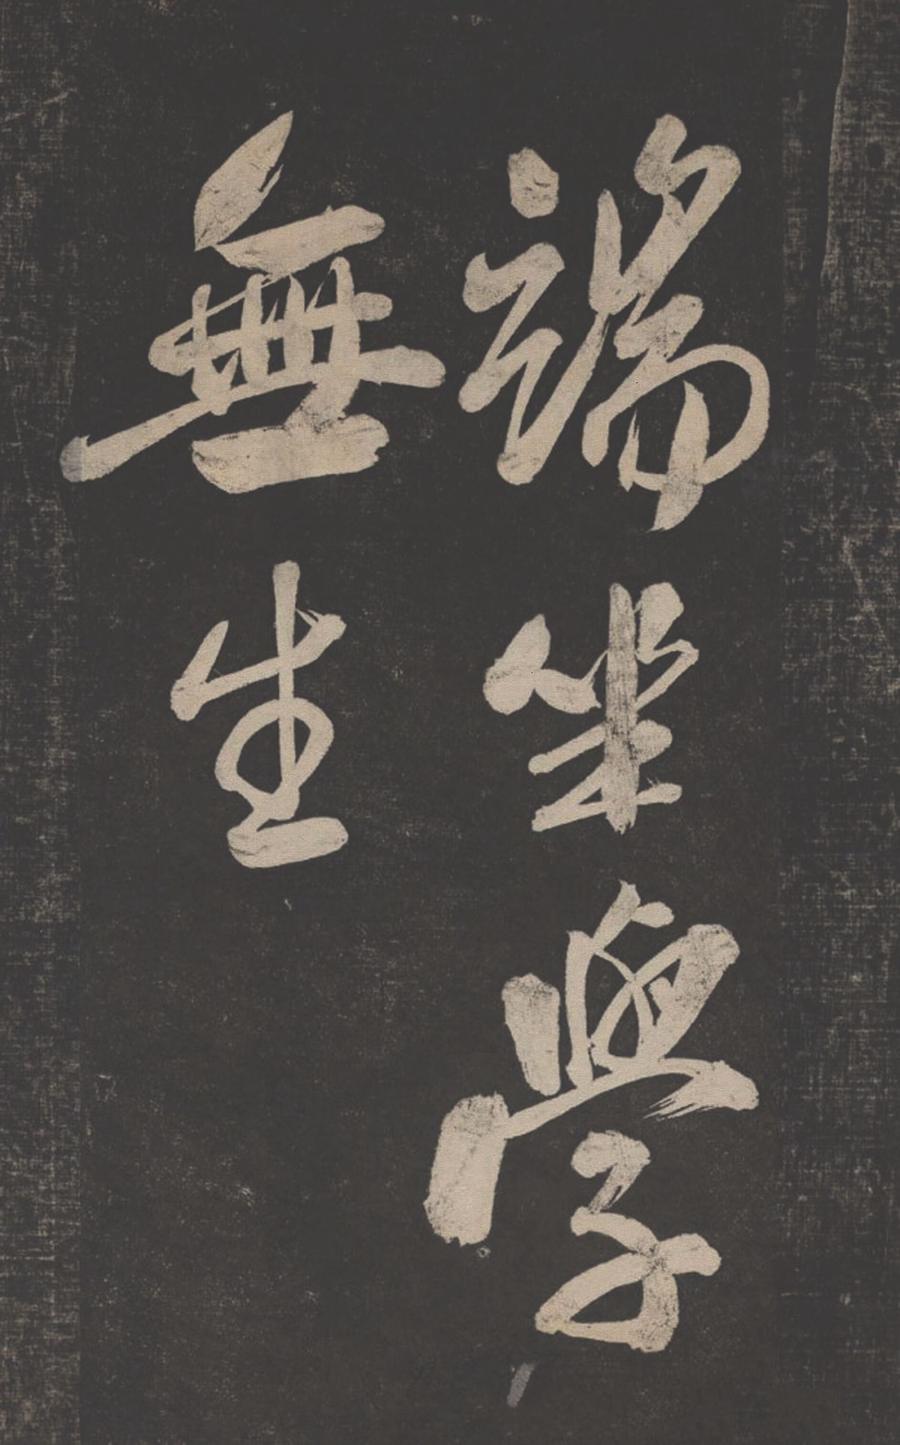 端坐學
無生